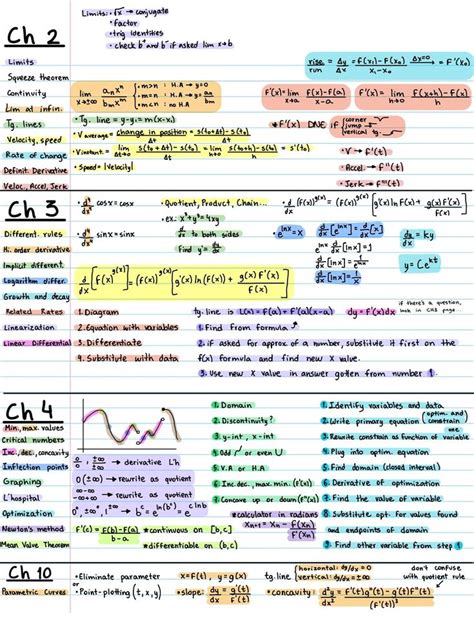 Ch 2
Limits: • √x → conjugate
• Factor
• trig identities
• check b⁺ and b⁻ if asked lim x→b
Limits
Squeeze theorem
Continuity
Lim at infin.
Tg. lines
Velocity, speed
Rate of change
Definit. Derivative
Veloc., Accel, Jerk
lim x→±∞ aₙxⁿ / bₘxᵐ
• m>n : H.A → y=0
• m=n : H.A → y= aₙ/bₘ
• m<n : no H.A
rise/run = Δy/Δx = f(x₁)-f(x₀) / x₁-x₀ Δx=0 → = F'(x₀)
F'(x) = lim x→a f(x)-f(a) / x-a
F'(x) = lim h→0 f(x+h)-f(x) / h
• Tg. line = y-y₁ = m(x-x₁)
• V average = change in position / Δt = s(t₀+Δt)-s(t₀) / Δt
• V instant. = lim Δt→0 s(t₀+Δt)-s(t₀) / Δt = lim h→0 s(t₀+h)-s(t₀) / h = s'(t₀)
• speed = |velocity|
* F'(x) DNE if corner
jump
vertical tg.
• V → F'(t)
• Accel. → F''(t)
• Jerk → F'''(t)
Ch 3
Different. rules
H. order derivative
Implicit different.
Logarithm differ.
Growth and decay
Related Rates
Linearization
Linear Differential
cosx = cosx
sinx = sinx
• Quotient, Product, Chain...
• ex. x³+y³=4xy
d/dx to both sides
Find y' = dy/dx
• d/dx (f(x))^g(x) = (f(x))^g(x) [g'(x) ln f(x) + g(x) f'(x) / f(x)]
d/dx [f(x)^g(x)] = (f(x))^g(x) [g'(x) ln(f(x)) + g(x) f'(x) / f(x)]
• e^lnx = x
d/dx [e^lnx] = d/dx [x]
e^lnx d/dx [lnx] = 1
x d/dx [lnx] = 1
d/dx [lnx] = 1/x
dy/dx = ky
y = Ce^kt
if there's a question,
look in Ch3 page.
1. Diagram
2. Equation with variables
3. Differentiate
4. Substitute with data
tg. line is L(x) = F(a) + F'(a)(x-a) dy = f'(x)dx
1. Find from formula
2. if asked for approx of a number, substitute it first on the
f(x) formula and find new x value.
3. Use new x value in answer gotten from number 1.
Ch 4
Min, max. values
Critical numbers
Inc., dec., concavity
Inflection points
Graphing
L'hospital
Optimization
Newton's method
Mean Value Theorem
0/0, ±∞/±∞ → derivative L'h
0(±∞) → rewrite as quotient
∞-∞ → rewrite as quotient
F'(c) = F(b)-F(a) / b-a
*continuous on [b,c]
*differentiable on (b,c)
1. Domain
2. Discontinuity?
3. y-int, x-int
4. Odd or even
5. V.A or H.A
6. Inc, dec., max, min. (f'(x))
7. Concave up or down (f''(x))
*calculator in radians
Xₙ₊₁ = Xₙ - F(Xₙ) / F'(Xₙ)
1. Identify variables and data
2. Write primary equation (optim. and constrain one)
3. Rewrite constrain as function of variable
4. Plug into optim. equation
5. Find domain (closed interval)
6. Derivative of optimization
7. Find the value of variable
8. Substitute opt. for values found
and endpoints of domain
9. Find other variable from step 1
Ch 10
Parametric Curves
• Eliminate parameter
or
• Point-plotting (t, x, y)
x=F(t), y=g(x)
• slope: dy/dx = g'(t) / f'(t)
tg. line horizontal: dy/dx = 0
vertical:
don't confuse
with quotient rule
• concavity: d²y/dx² = f'(t)g''(t) - g'(t)f''(t) / (F'(t))³